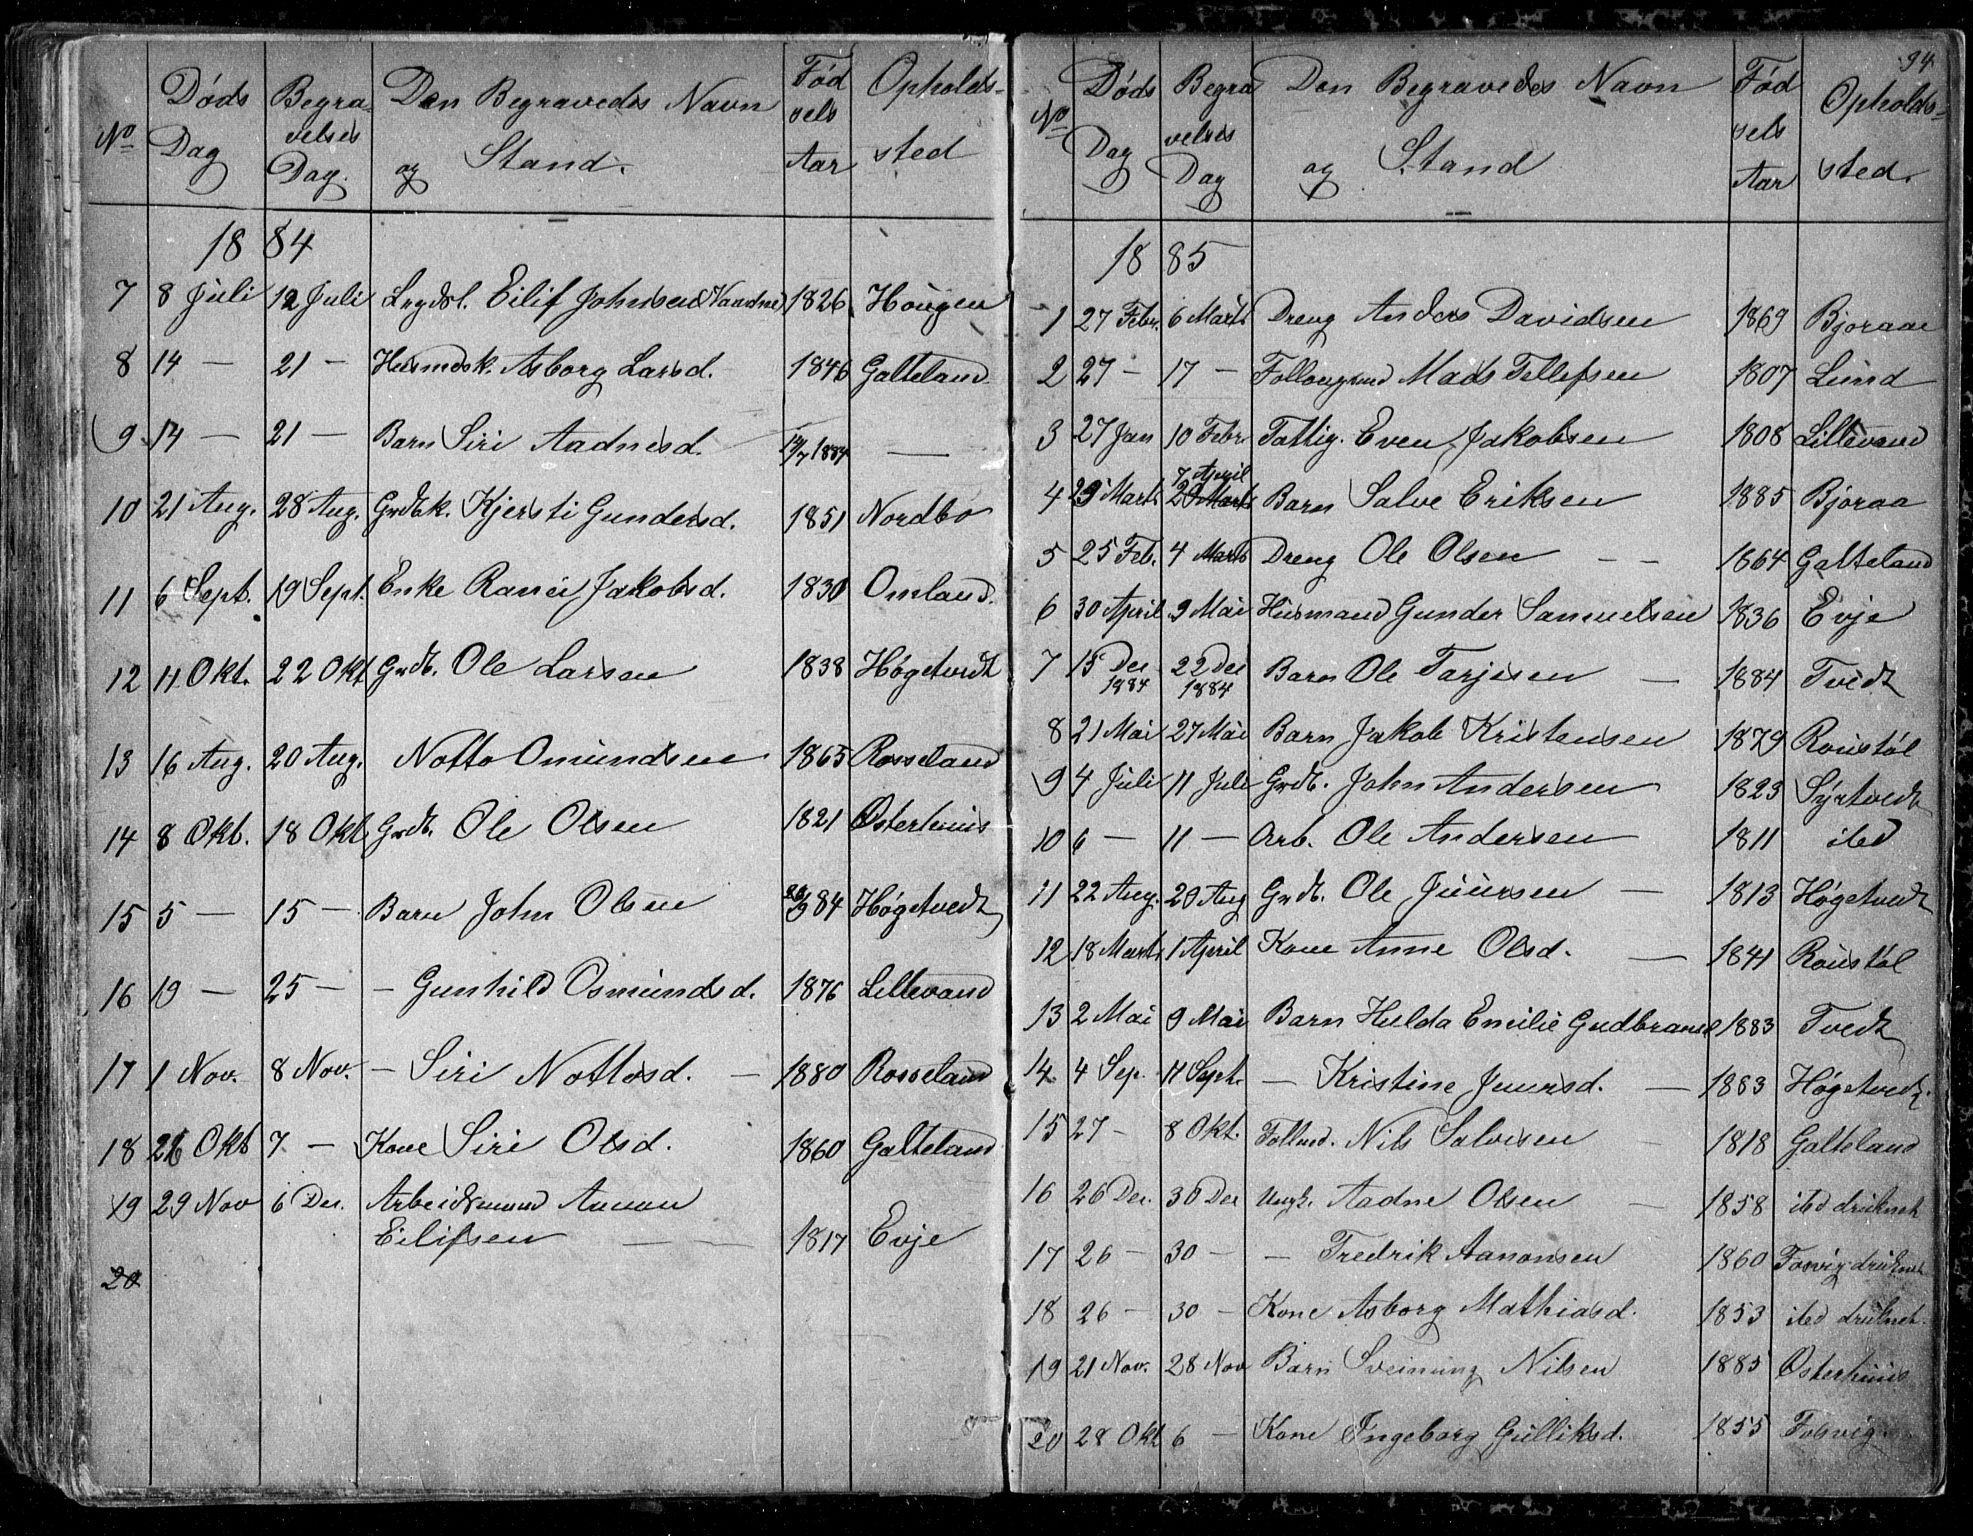 No Døds Dag Begravelses Dag. Den Begravedes Navn og Stand. Fødselsaar Opholdssted
1884
7 8 Juli 12 Juli Lægdsl. Eilif Johnsen 1826 Hougen
8 14 — 21 — Husmdsk. Asborg Larsd. 1846 Galteland
9 14 — 21 — Barn Siri Aadnesd. 14/7 1884 —
10 21 Aug. 28 Aug. Grdbk. Kjersti Gundersd. 1851 Nordbø
11 6 Sept. 19 Sept. Enke Ranei Jakobsd. 1830 Omland.
12 11 Okt. 22 Okt Grdb. Ole Larsen 1838 Høgetvedt
13 16 Aug. 20 Aug. Notto Omundsen 1865 Rosseland
14 8 Okt. 18 Okt Grdb. Ole Olsen 1821 Østerhuus
15 5 — 15 — Barn John Olsen 84 Høgetvedt
16 19 — 25 — — Gunhild Osmundsd. 1876 Lillevand
17 1 Nov. 8 Nov. — Siri Nottosd. — 1880 Rosseland
18 26 Okt 7 — Kone Siri Olsd. 1860 Galteland
19 29 Nov 6 Dec. Arbeidsmand Aanon
Eilifsen — — 1817 Evje
20
94
No Døds Dag Begravelses Dag Den Begravedes Navn og Stand Fødselsaar Opholdssted.
1885
1 27 Febr. 6 Marts Dreng Anders Davidsen 1869 Bjoraae
2 27 — 17 — Føllougsmd Mads Tellefsen 1807 Lund
3 27 Jan 10 Febr Fattig. Even Jakobsen 1808 Lillevand
7 April
4 29 Marts 29 Marts Barn Salve Eriksen 1885 Bjoraa
5 25 Feb. 4 Marts Dreng Ole Olsen — — 1864 Galteland
6 30 April 9 Mai Husmand Gunder Samuelsen 1836 Evje
7 15 Dec 1884 22 Dec 1884 Barn Ole Tarjesen — 1884 Tvedt
8 21 Mai 27 Mai Barn Jakob Kristensen 1879 Roustøl
9 4 Juli 11 Juli Grdb. John Andersen 1823 Syrtvedt
10 6 — 11 — Arb. Ole Andersen 1811 ibd
11 22 Aug. 29 Aug Grdb. Ole Juursen — 1813 Høgetvedt
12 18 Marts 1 April Kone Anne Olsd. — 1841 Roustøl
13 2 Mai 9 Mai Barn Hulda Emilie Gudbransd 1883 Tvedt
14 4 Sep. 11 Sept. — Kristine Juursd. — 1883 Høgetvedt.
15 27 — 8 Okt. Føllmd. Nils Salvesen — 1818 Galteland
16 26 Dec. 30 Dec Ungk. Aadne Olsen — 1858 ibd druknet
17 26 — 30 — — Fredrik Aanonsen 1860 Fosvig druknet
18 26 — 30 — Kone Asborg Mathiasd. 1853 ibd druknet.
19 21 Nov. 28 Nov Barn Sveinung Nilsen 1885 Østerhuus
20 28 Okt 6 — Kone Ingeborg Gulliksd. 1855 Fosvig